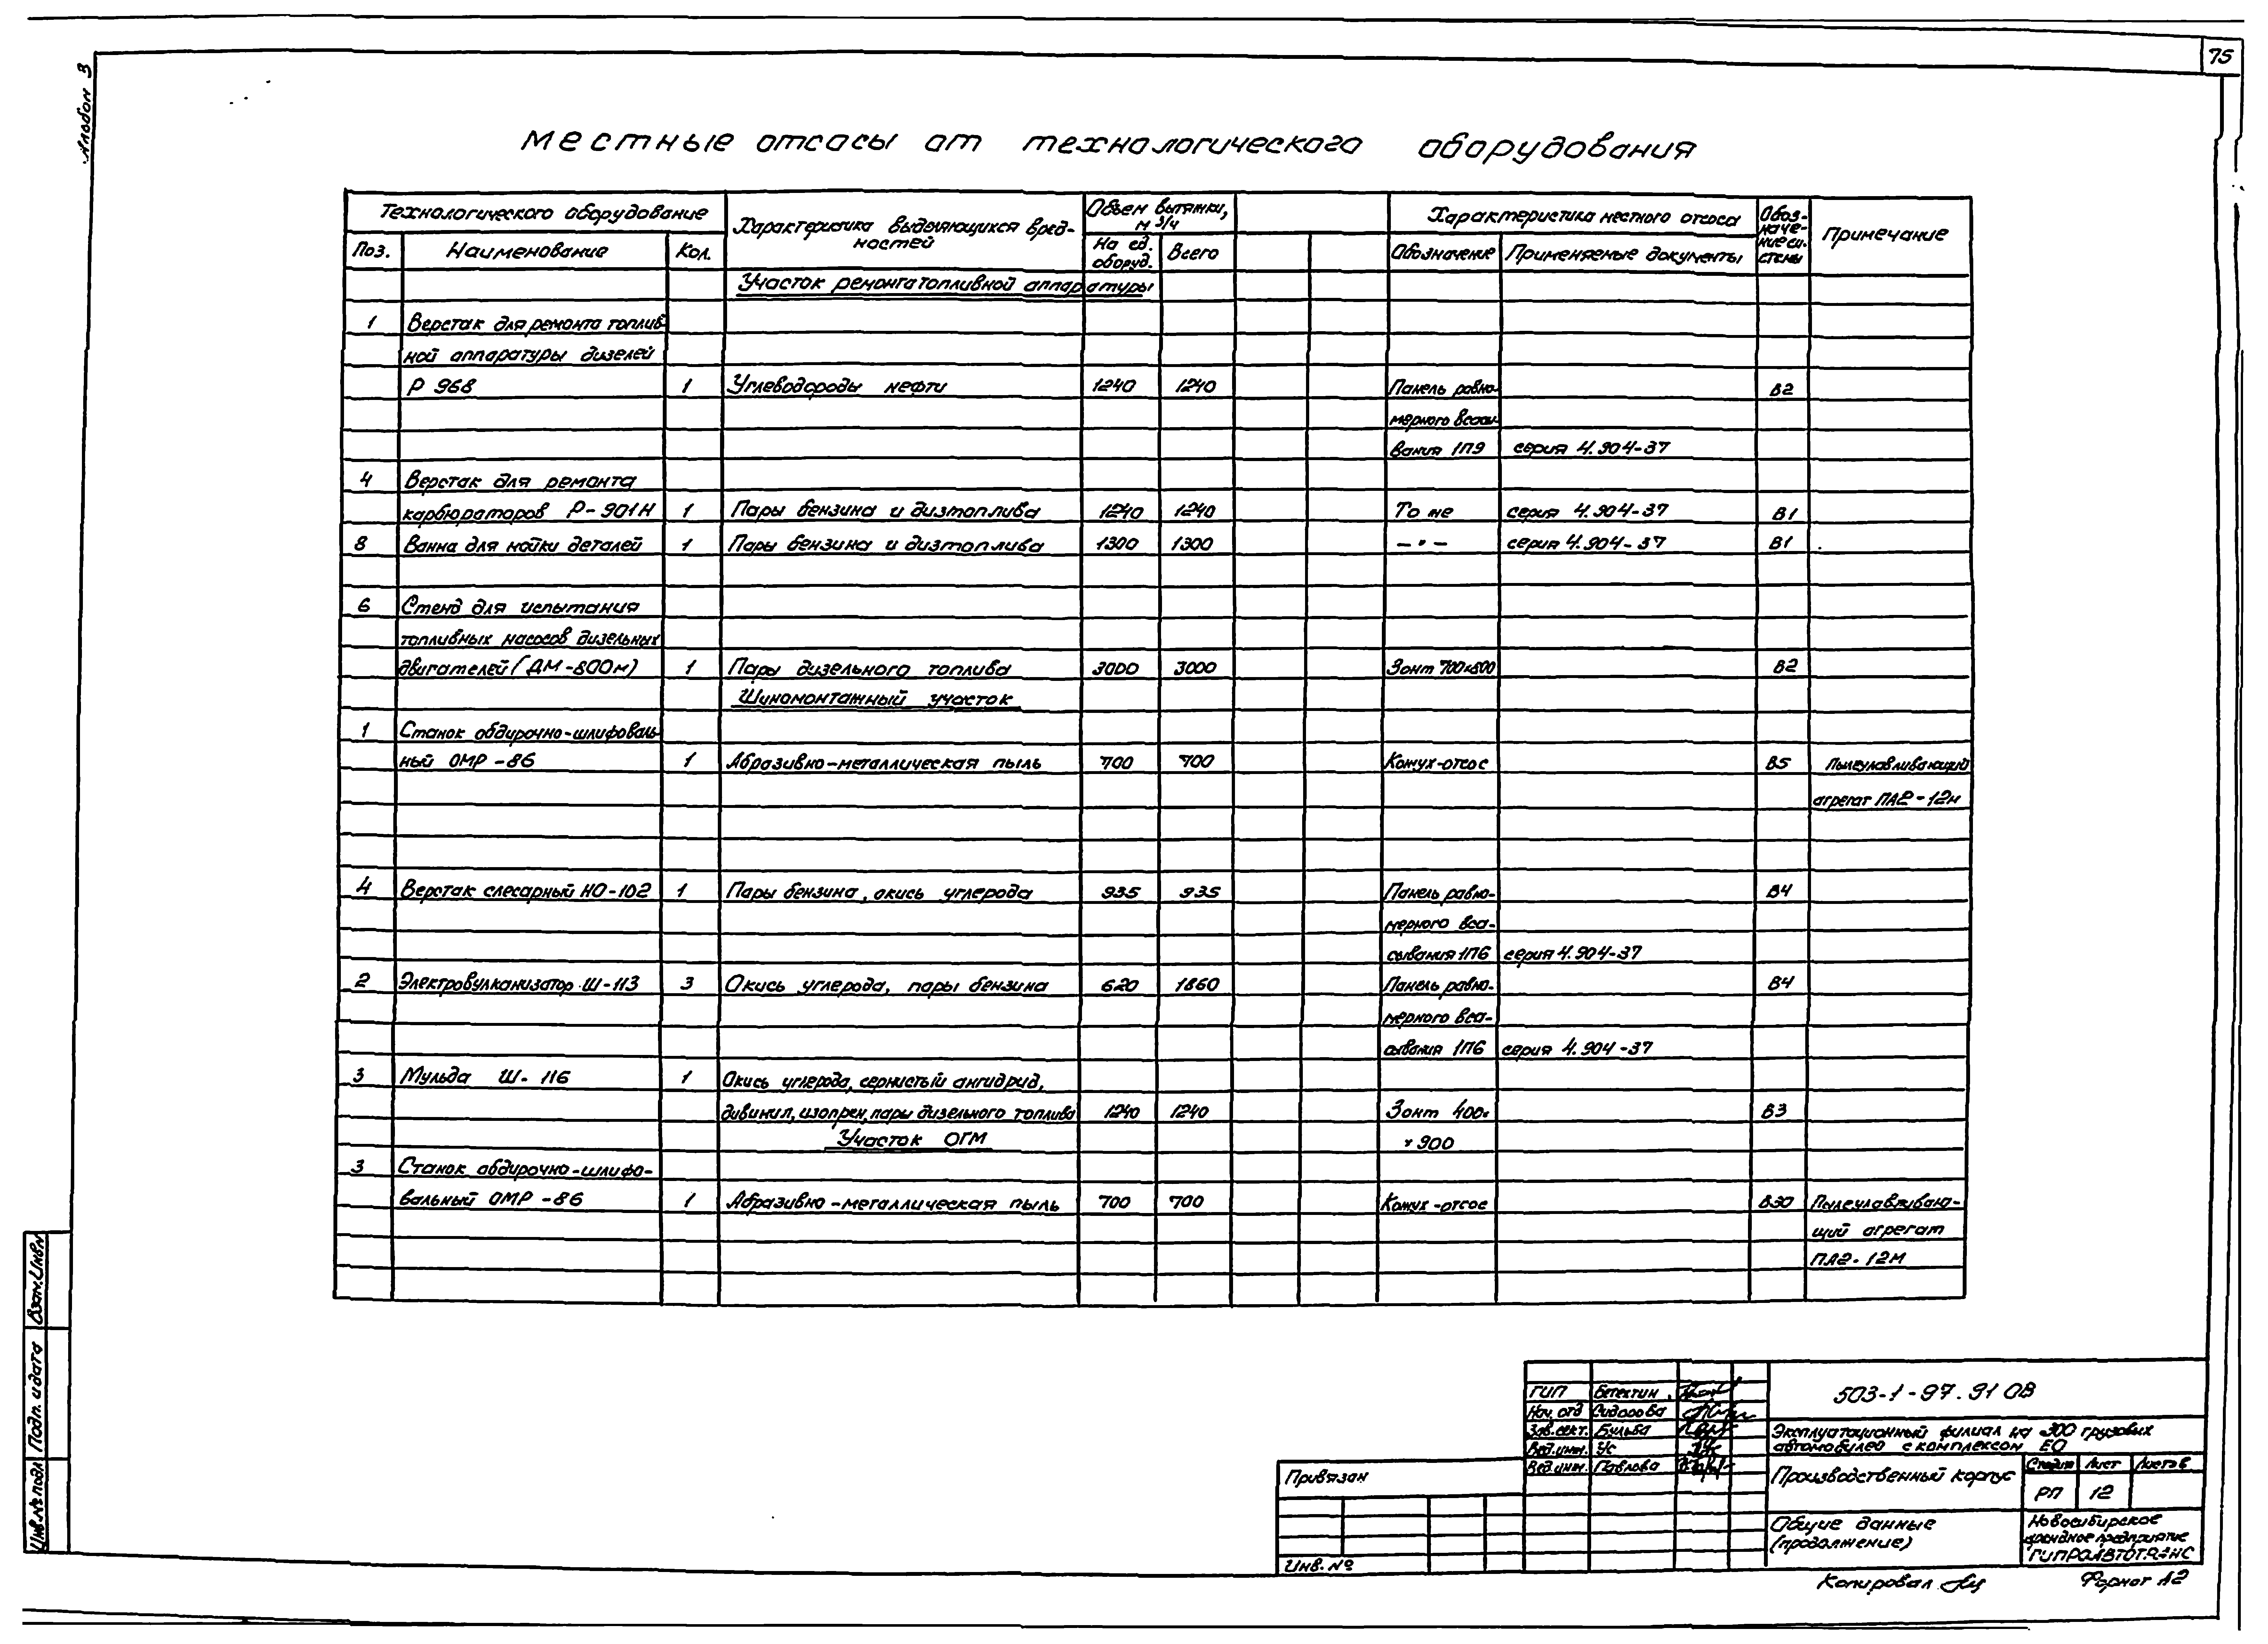 75
Альбом 3
Местные отсосы от технологического оборудования
Технологического оборудование
Характеристика выделяющихся вред-
ностей
Объем вытяжки,
м3/ч
Характеристика местного отсоса
Обоз-
наче-
ние си-
стемы
Примечание
Поз. Наименование Кол. На ед. оборуд. Всего Обозначение Применяемые документы
Участок ремонта топливной аппаратуры
1 Верстак для ремонта топлив-
ной аппаратуры дизелей
Р 968 1 Углеводороды нефти 1240 1240 Панель равно- В2
мерного всасы-
вания 1П9 серия 4.904-37
4 Верстак для ремонта
карбюраторов Р-901Н 1 Пары бензина и дизтоплива 1240 1240 То же серия 4.904-37 В1
8 Ванна для мойки деталей 1 Пары бензина и дизтоплива 1300 1300 — " — серия 4.904-37 В1
6 Стенд для испытания
топливных насосов дизельных
двигателей (ДМ-800м) 1 Пары дизельного топлива 3000 3000 Зонт 700х800 В2
Шиномонтажный участок
1 Станок обдирочно-шлифоваль-
ный ОМР-86 1 Абразивно-металлическая пыль 700 700 Кожух-отсос В5 Пылеулавливающий
агрегат ПА2-12м
4 Верстак слесарный НО-102 1 Пары бензина, окись углерода 935 935 Панель равно- В4
мерного вса-
сывания 1П6 серия 4.904-37
2 Электровулканизатор Ш-113 3 Окись углерода, пары бензина 620 1860 Панель равно- В4
мерного вса-
сывания 1П6 серия 4.904-37
3 Мульда Ш-116 1 Окись углерода, сернистый ангидрид,
дивинил, изопрен, пары дизельного топлива 1240 1240 Зонт 400х В3
Участок ОГМ х 900
3 Станок обдирочно-шлифо-
вальный ОМР-86 1 Абразивно-металлическая пыль 700 700 Кожух-отсос В30 Пылеулавливаю-
щий агрегат
ПА2-12М
Взам.Инв.N
Подп. и дата
Инв.№ подл
Привязан
Инв. №
ГИП Бетехтин
Нач. отд Сидорова
Зав. сект. Бульба
Вед.инж. Ус
Вед.инж. Павлова
503-1-97.91 ОВ
Эксплуатационный филиал на 300 грузовых
автомобилей с комплексом ЕО
Производственный корпус
Стадия Лист Листов
РП 12
Общие данные
(продолжение)
Новосибирское
арендное предприятие
ГИПРОАВТОТРАНС
Копировал
Формат А2